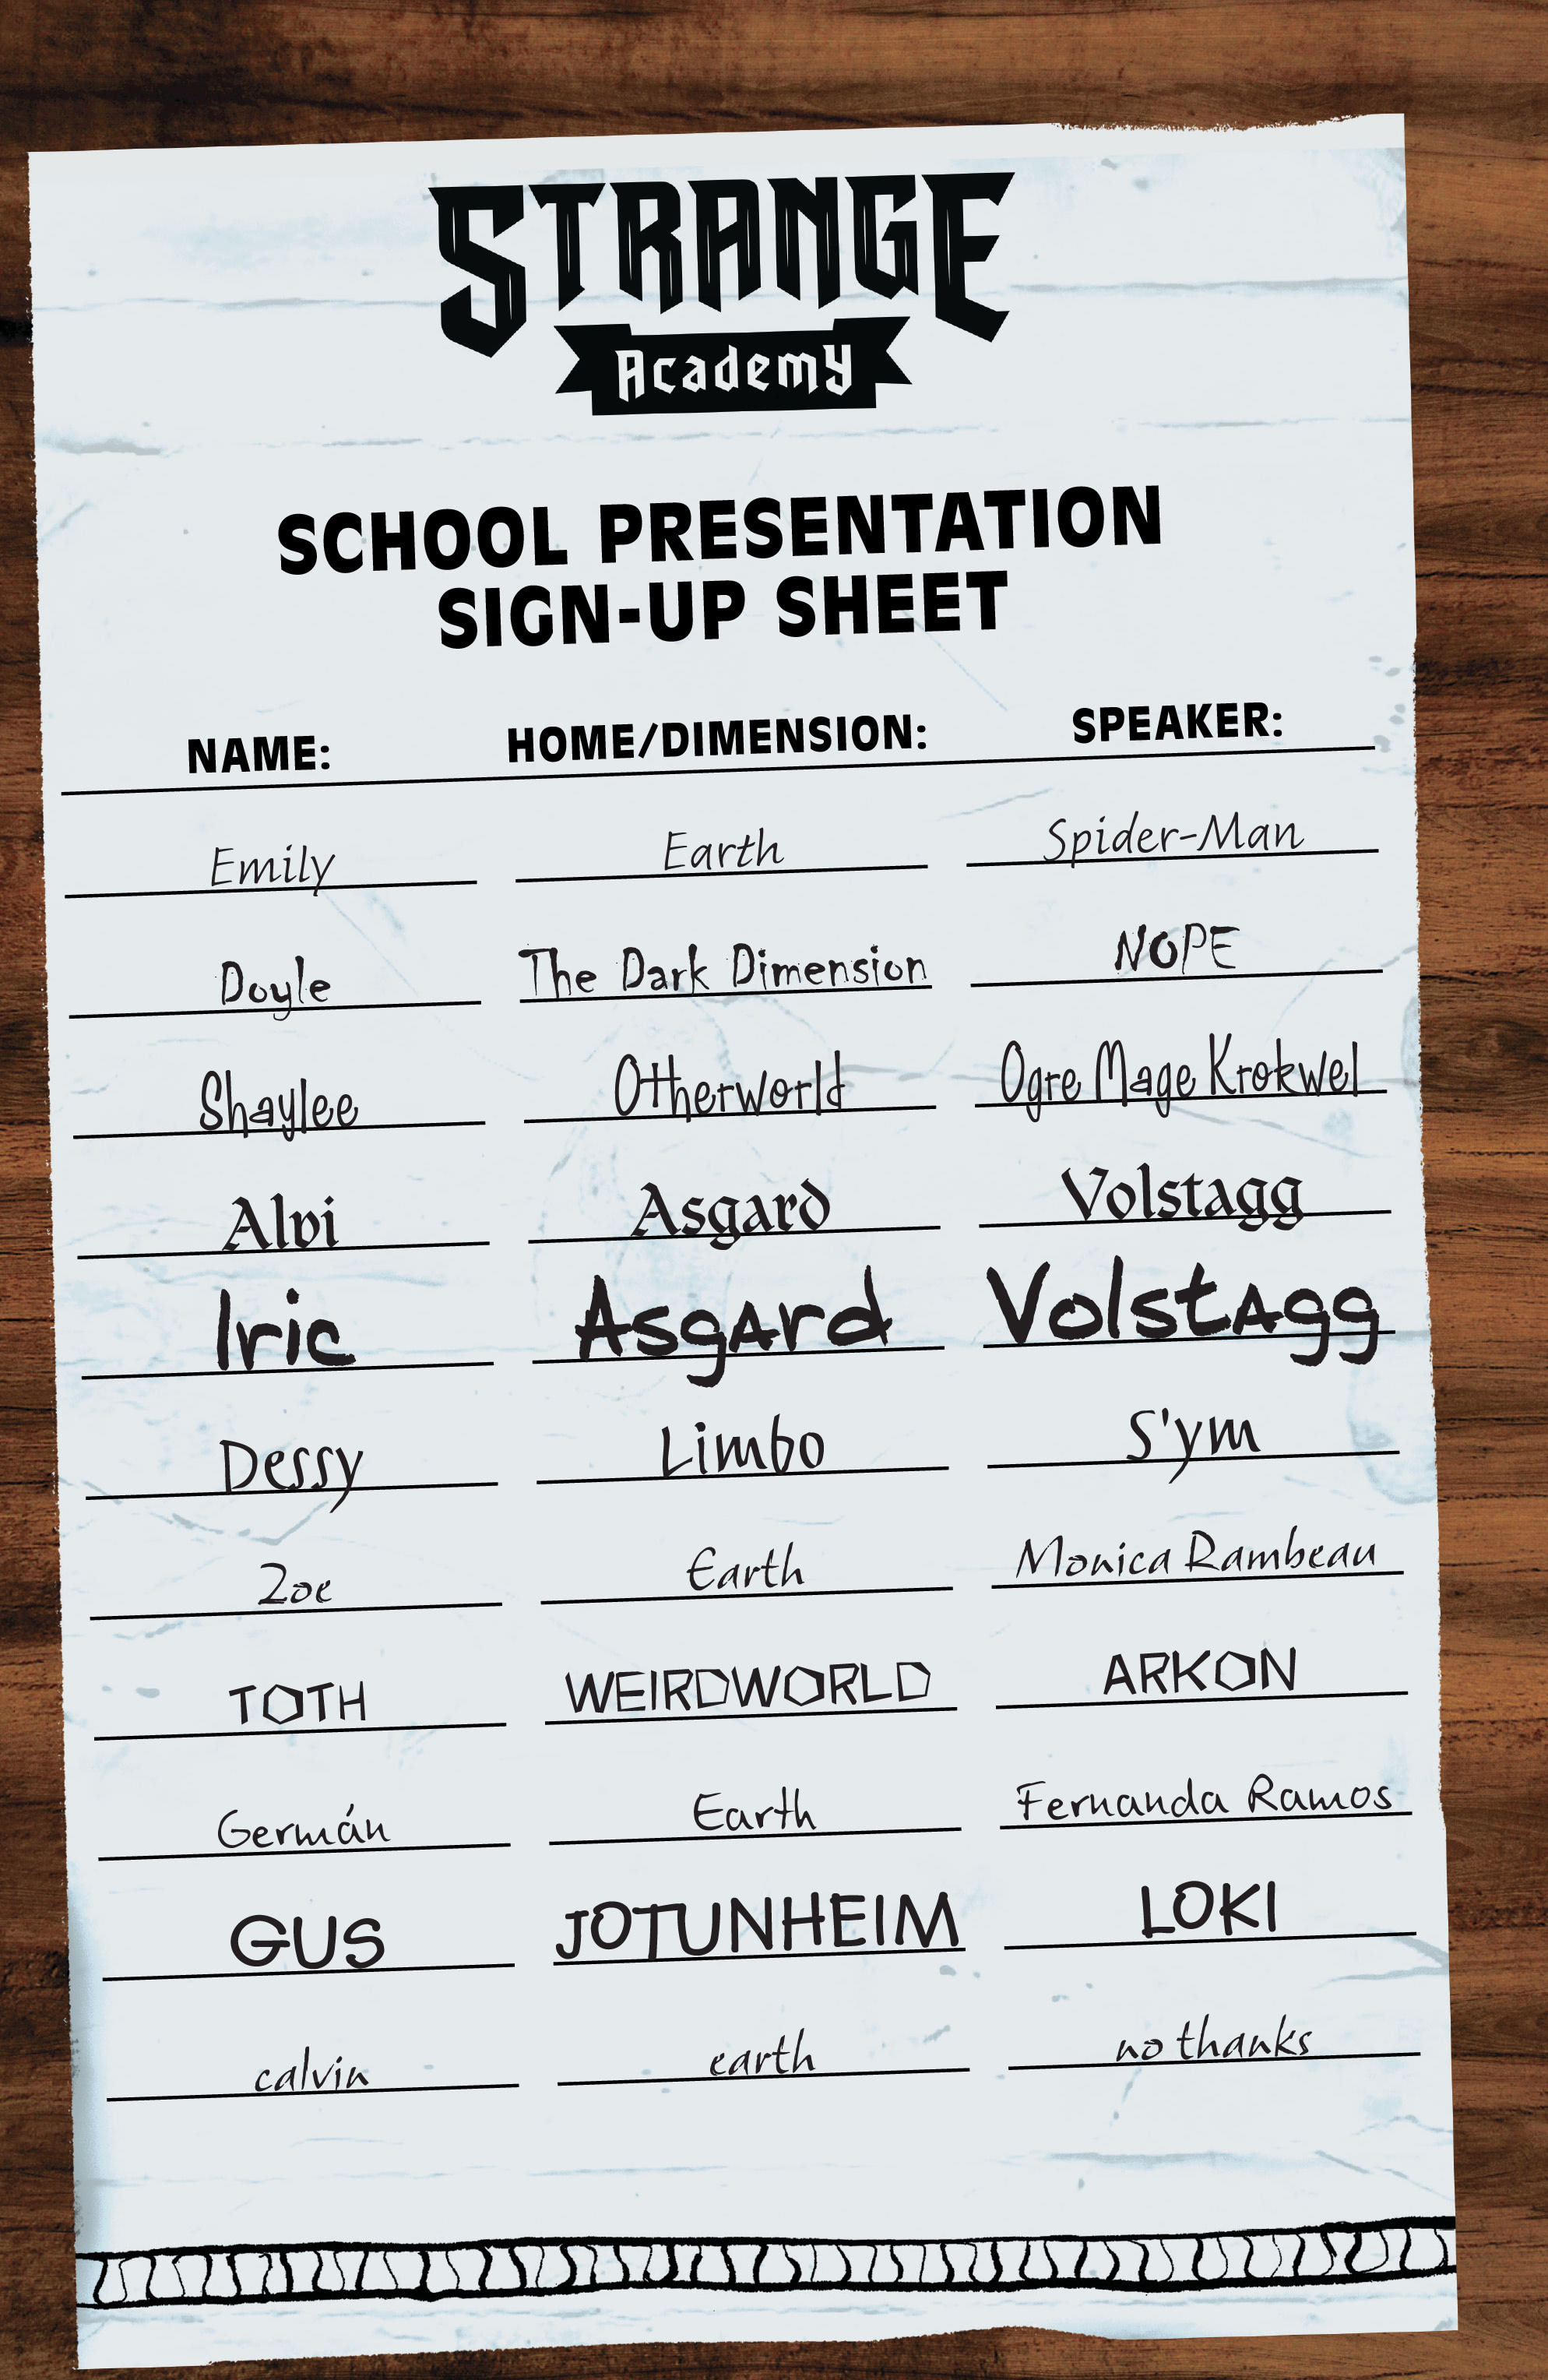 STRANGE
Academy
SCHOOL PRESENTATION
SIGN-UP SHEET
NAME: HOME/DIMENSION: SPEAKER:
Emily Earth Spider-Man
Doyle The Dark Dimension NOPE
Shaylee Otherworld Ogre Mage Krokwel
Alvi Asgard Volstagg
Iric Asgard Volstagg
Dessy Limbo S'ym
Zoe Earth Monica Rambeau
TOTH WEIRDWORLD ARKON
Germán Earth Fernanda Ramos
GUS JOTUNHEIM LOKI
calvin earth no thanks